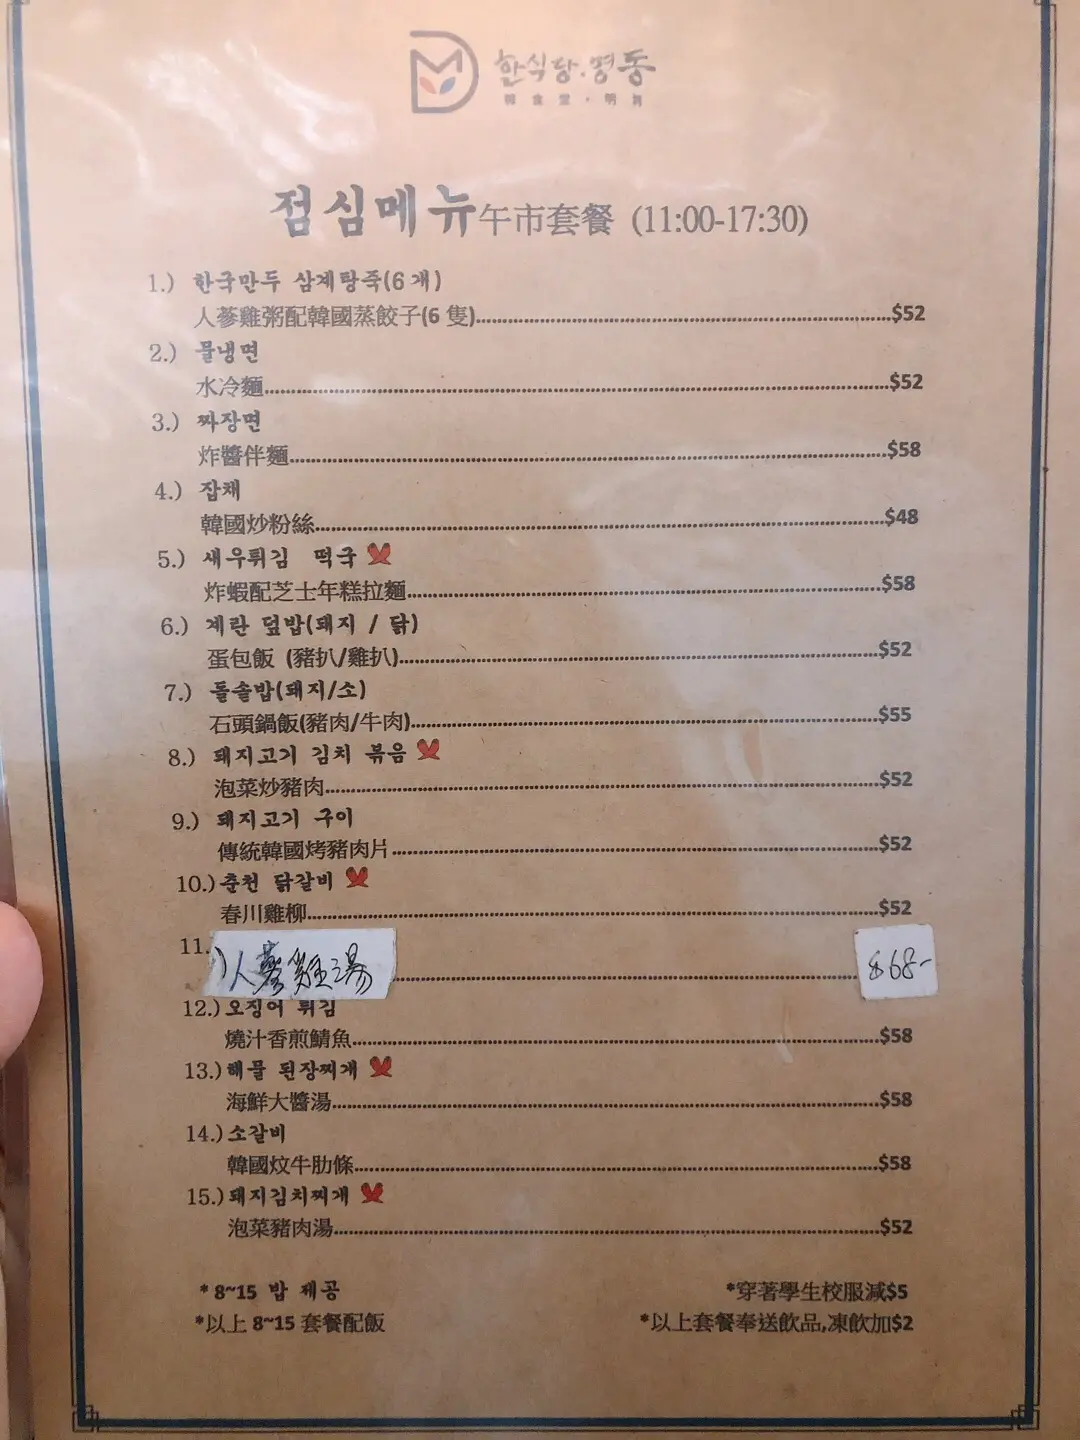 한식당.명동
韓食堂·明洞
점심메뉴午市套餐 (11:00-17:30)
1.) 한국만두 삼계탕죽(6개)
人蔘雞粥配韓國蒸餃子(6 隻)....$52
2.) 물냉면
水冷麵....$52
3.) 짜장면
炸醬伴麵....$58
4.) 잡채
韓國炒粉絲....$48
5.) 새우튀김 떡국
炸蝦配芝士年糕拉麵....$58
6.) 계란 덮밥(돼지 / 닭)
蛋包飯 (豬扒/雞扒)....$52
7.) 돌솥밥(돼지/소)
石頭鍋飯(豬肉/牛肉)....$55
8.) 돼지고기 김치 볶음
泡菜炒豬肉....$52
9.) 돼지고기 구이
傳統韓國烤豬肉片....$52
10.) 춘천 닭갈비
春川雞柳....$52
11.) 人蔘雞湯....$68-
12.) 오징어 튀김
燒汁香煎鯖魚....$58
13.) 해물 된장찌개
海鮮大醬湯....$58
14.) 소갈비
韓國炆牛肋條....$58
15.) 돼지김치찌개
泡菜豬肉湯....$52
* 8~15 밥 제공
*以上 8~15 套餐配飯
*穿著學生校服減$5
*以上套餐奉送飲品,凍飲加$2